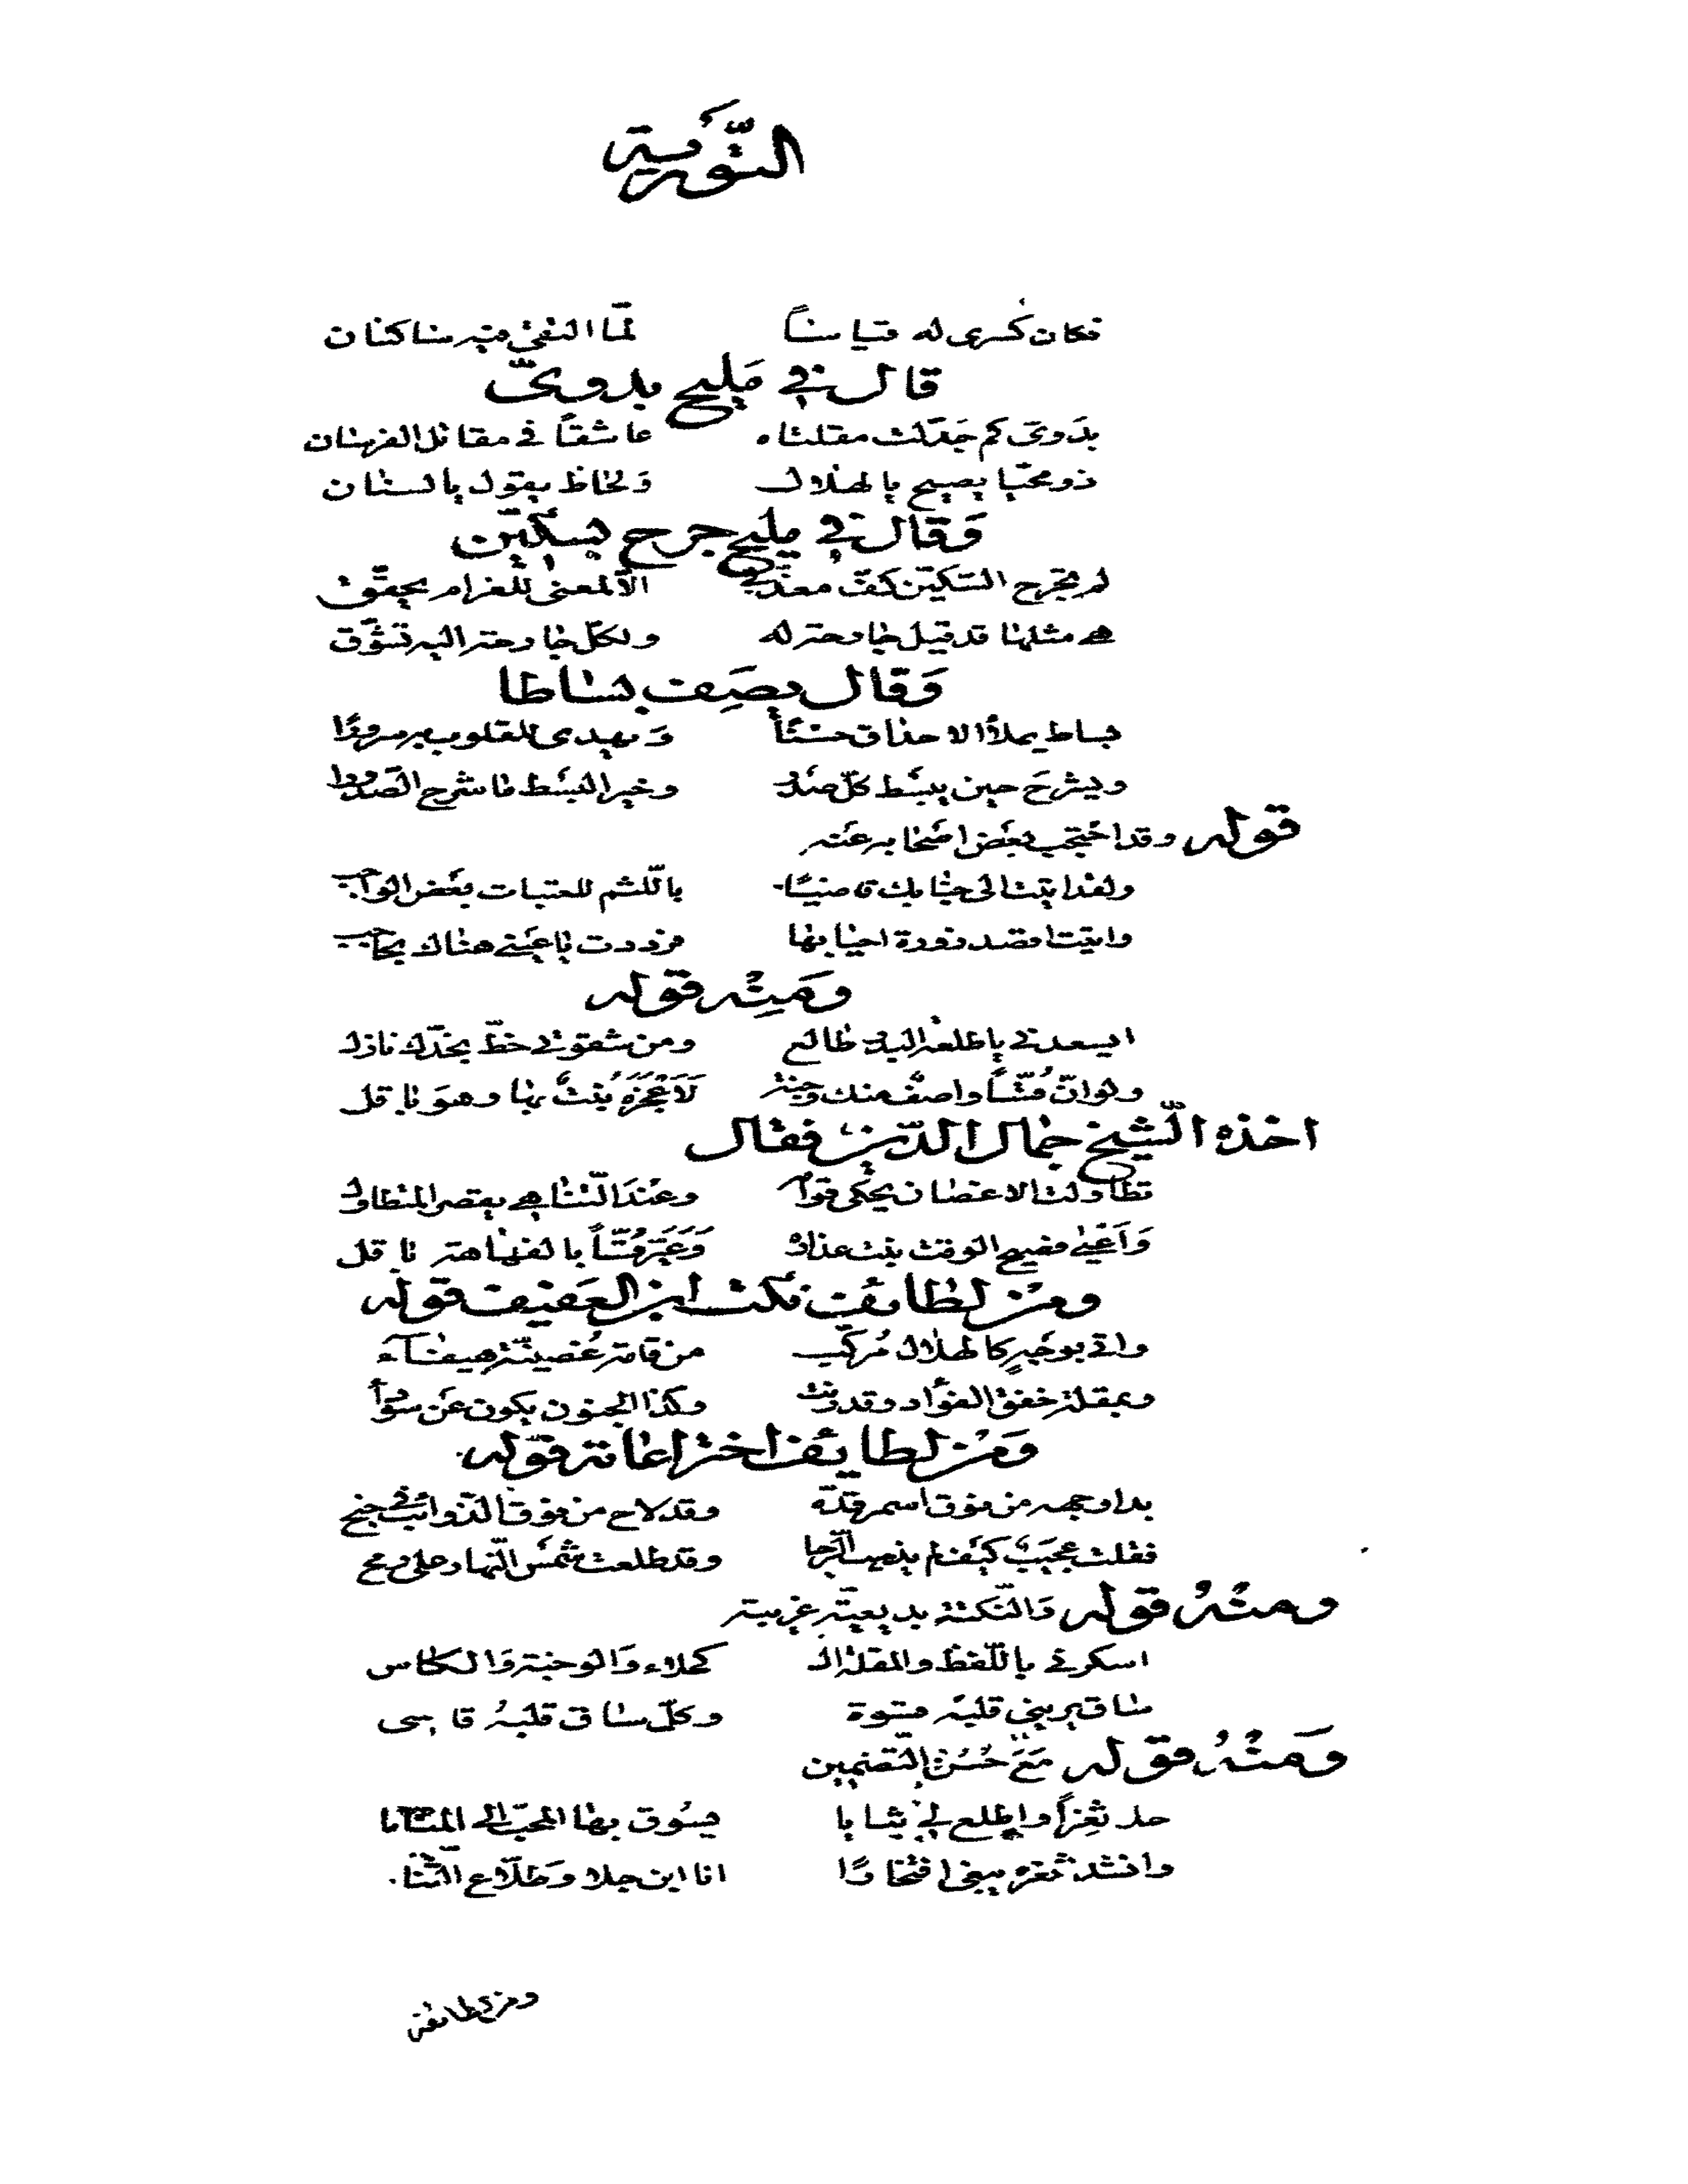 التّورية
فكان كسرى له قياسًا لمّا التقى فيه ساكنان
قال في مَليح بدويّ
بدَويّ كم جَدّلت مقلتاه عاشقًا في مقاتل الفرسان
ذو محيّا يصيح يا لهلال وَلحاظ يقول يا لسنان
وَقال في مليح جرح بسكّين
لم تجرح السّكّين كفّ معذّبي الّا لمعنى للغرام يحقّق
هي مثلنا قد قيل جارحة له ولكلّ جارحة اليه تشوّق
وَقال يصِف بساطا
بساط يملأ الاحداق حسنًا وَيهدى للقلوب به سرورًا
ويشرحَ حين يبسَط كلّ صدر وخير البسَط ما شرح الصّدورا
قوله وقد احتجب بعَض اصَحابه عنَه
ولقد اتيت الى جنابك قاضيًا باللّثم للعتبات بعَض الواجب
واتيت اقصد زورة احيا بها فرددت يا عَيني هناك بحاجب
ومَنِه قوله
ايسعدني يا طلعة البدر طالع ومن شقوتي خطّ بخدّك نازل
ولو انّ قُسّاً واصفٌ منك وجنة لَاَعْجَزَهُ نبتٌ بها وهوَ باقل
اخذه الشّيخ جمال الدّين فقال
تطاولت الاغصان تحكى قوامه وعنَد التّناهي يقصر المتطاول
وَاَعَيى فصيح الوقت نبت عذاره وَعَيَّر قُسّاً بالفهاهة باقل
ومن لطائف نكت ابن العَفيف قوله
وافى بوجَهٍ كالهلال مُركّب من قامة غُصينّة هيفَآءَ
وبمقلة خفق الفؤاد وقد رنت وكذا الجنون يكون عَن سودَاء
وَمن لطايف اختراعاته قوله
بدا وجهه من فوق اسمر قدّه وقد لاح من فوق الذّوائب في جنح
فقلت عجَيبٌ كيَف لم يذهب الدّجا وقد طلعت شمَس النّهار على رمح
ومنهُ قوله وَالنّكتة بديعيّة غريبة
اسكرني باللّفظ والمقلة الـ كحلاء وَالوجنة وَالكاس
ساق يريني قلبَه قسَوة وكلّ ساق قلبَهُ قاسى
وَمنهُ قوله مَعَ حُسُن التّضمين
جلا ثغراً واطلع لي ثنايا يسُوق بها المحبّ الى المنايا
وانشد ثغره يبغى افتخارًا انا ابن جلا وَطلّاع الثّنايا
ومن لطائف